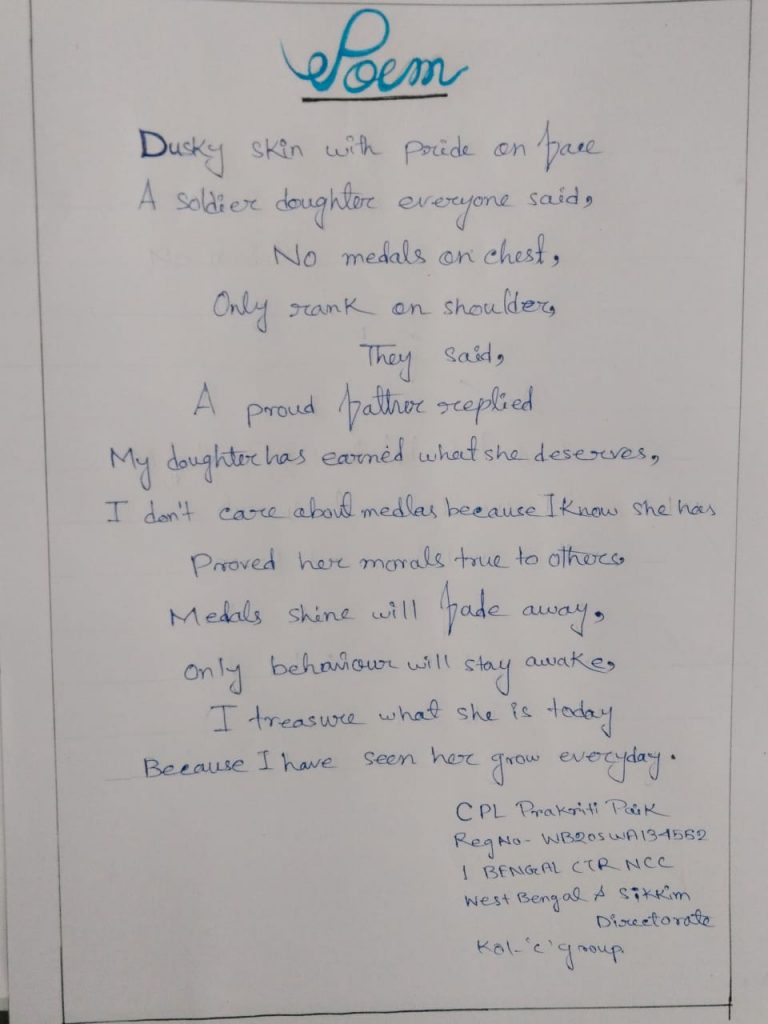 Poem
Dusky skin with pride on face
A soldier doughter everyone said,
No medals on chest,
Only rank on shoulder,
They said,
A proud father replied
My doughter has earned what she deserves,
I don't care about medlas because I Know she has
Proved her morals true to others.
Medals shine will fade away,
Only behaviour will stay awake,
I treasure what she is today
Because I have seen her grow everyday.
CPL Prakriti Paik
Reg No- WB20SWA134552
1 BENGAL CTR NCC
West Bengal & Sikkim
Directorate
Kol-'C' group